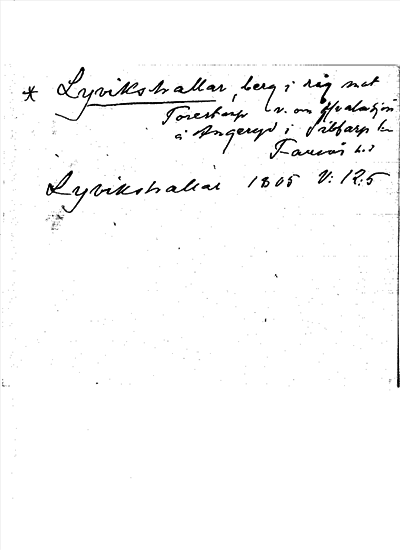 * Lyvikshallar, berg i råg mot
Torestorp v. om Hvalasjön
å Angeryd i Sibbarp sn
Faurås hd
Lyvikshallar 1805 V: 125